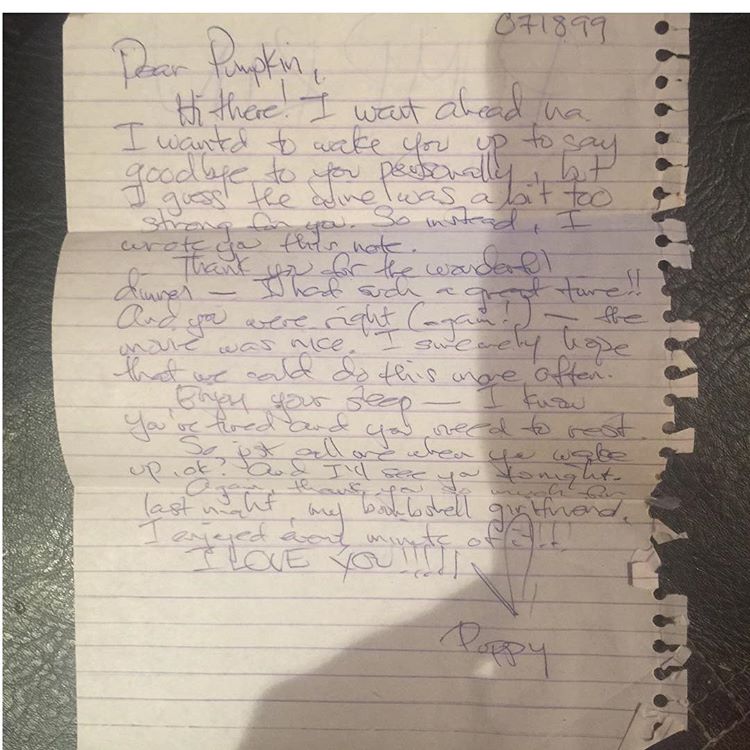 071899
Dear Pumpkin,
Hi there! I want ahead ha.
I wantd to wake you up to say
goodbye to you personally, but
I guess the wine was a bit too
strong for you. So instead, I
wrote you this note.
Thank you for the wonderful
dinner — I had such a great time!!
And you were right (again!) — the
movie was nice. I sincerely hope
that we could do this more often.
Enjoy your sleep — I know
you're tired and you need to rest.
So, just call me when you wake
up, ok? And I'll see you tonight.
Again, thank you so much for
last night, my bombshell girlfriend.
I enjoyed every minute of it!!
I LOVE YOU!!!!!!
Poppy